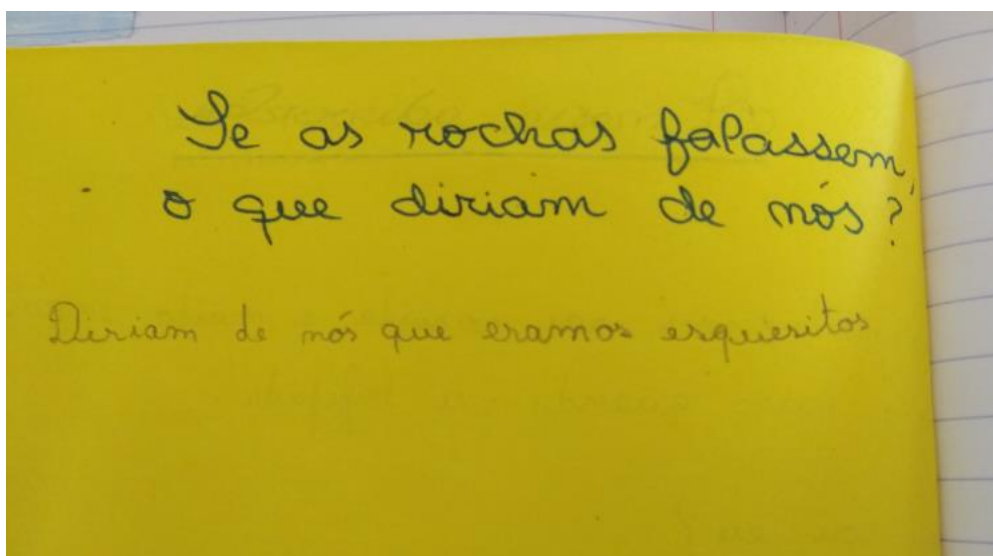 Se as rochas falassem,
o que diriam de nós?
Diriam de nós que eramos esquesitos